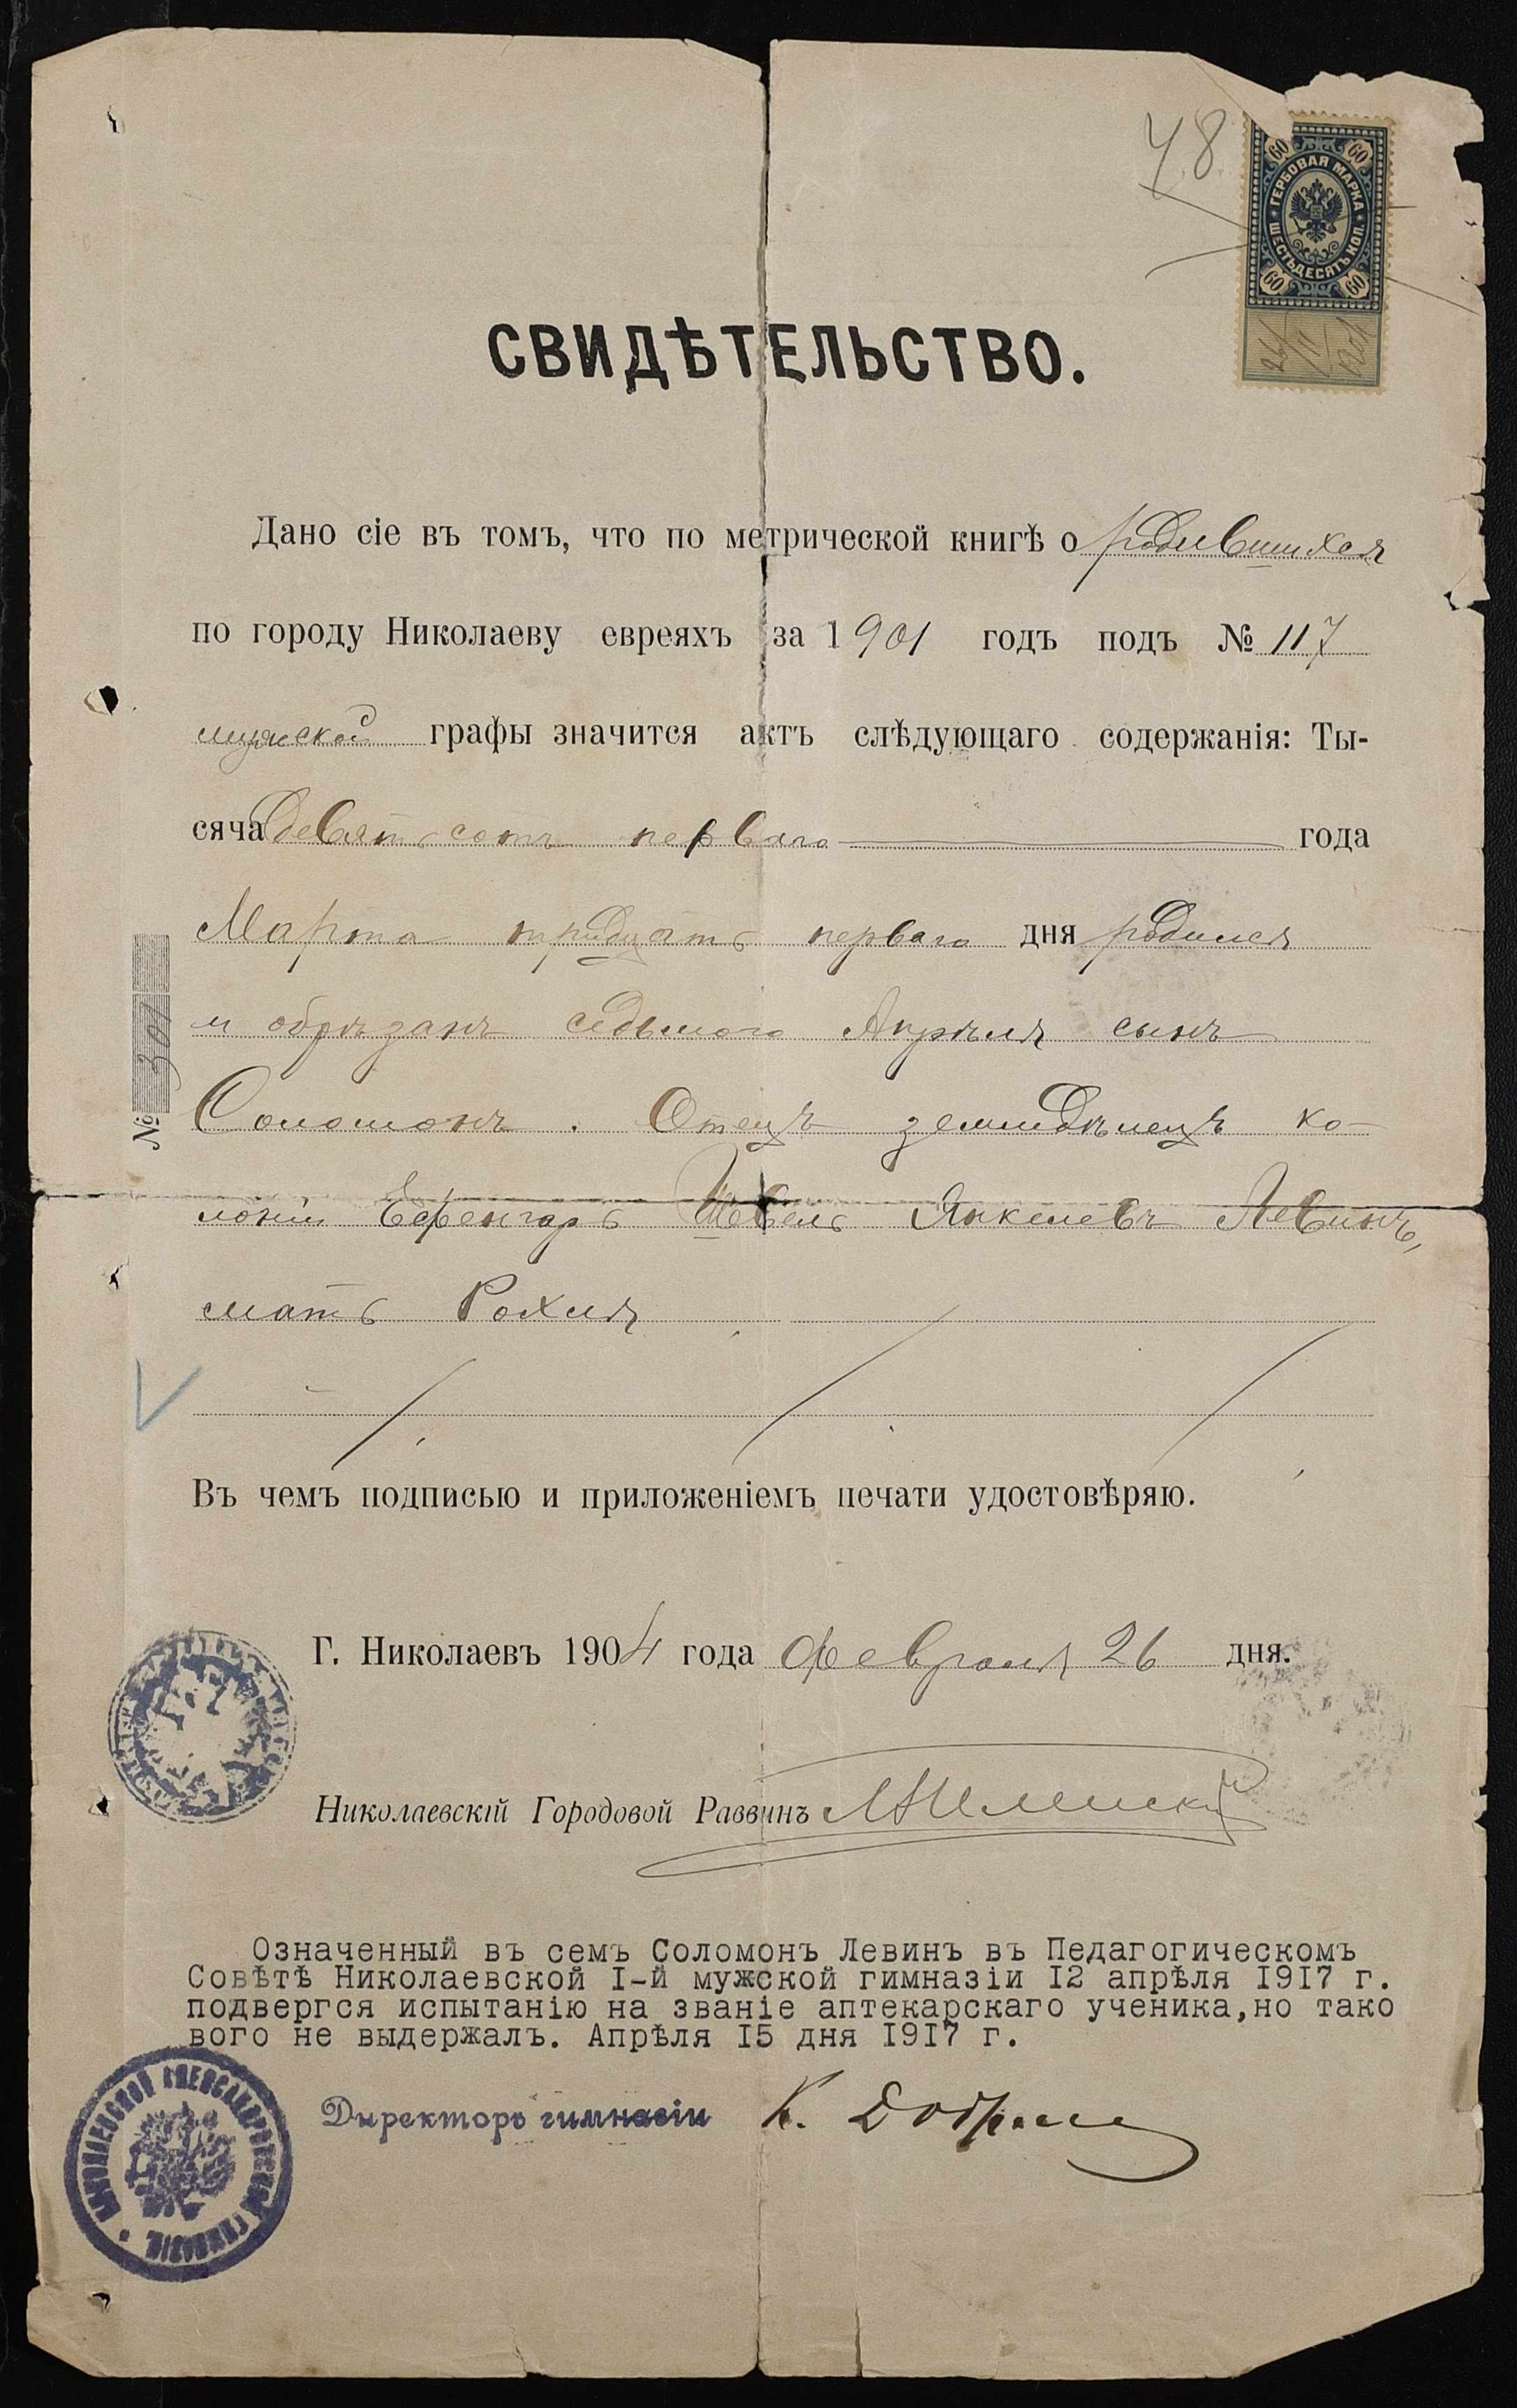 48
60 60
ГЕРБОВАЯ МАРКА
ШЕСТЬДЕСЯТЪ КОП.
60 60
26/II 1904
СВИДѢТЕЛЬСТВО.
Дано сіе въ томъ, что по метрической книгѣ о родившихся
по городу Николаеву евреяхъ за 1901 годъ подъ № 117
мужской графы значится актъ слѣдующаго содержанія: Ты-
сяча девятьсотъ перваго года
Марта тридцать перваго дня родился
и обрѣзанъ седьмого Апрѣля сынъ
Соломонъ. Отецъ земледѣлецъ ко-
лоніи Ефенгаръ Шевель Янкелевъ Левинъ,
мать Рохля
№ 301
Въ чемъ подписью и приложеніемъ печати удостовѣряю.
Г. Николаевъ 1904 года Февраля 26 дня.
Николаевскій Городовой Раввинъ
Означенный въ семъ Соломонъ Левинъ въ Педагогическомъ
Совѣтѣ Николаевской I-й мужской гимназіи I2 апрѣля I9I7 г.
подвергся испытанію на званіе аптекарскаго ученика,но тако
вого не выдержалъ. Апрѣля I5 дня I9I7 г.
Директоръ гимназіи К.
НИКОЛАЕВСКОЙ АЛЕКСАНДРОВСКОЙ ГИМНАЗІИ